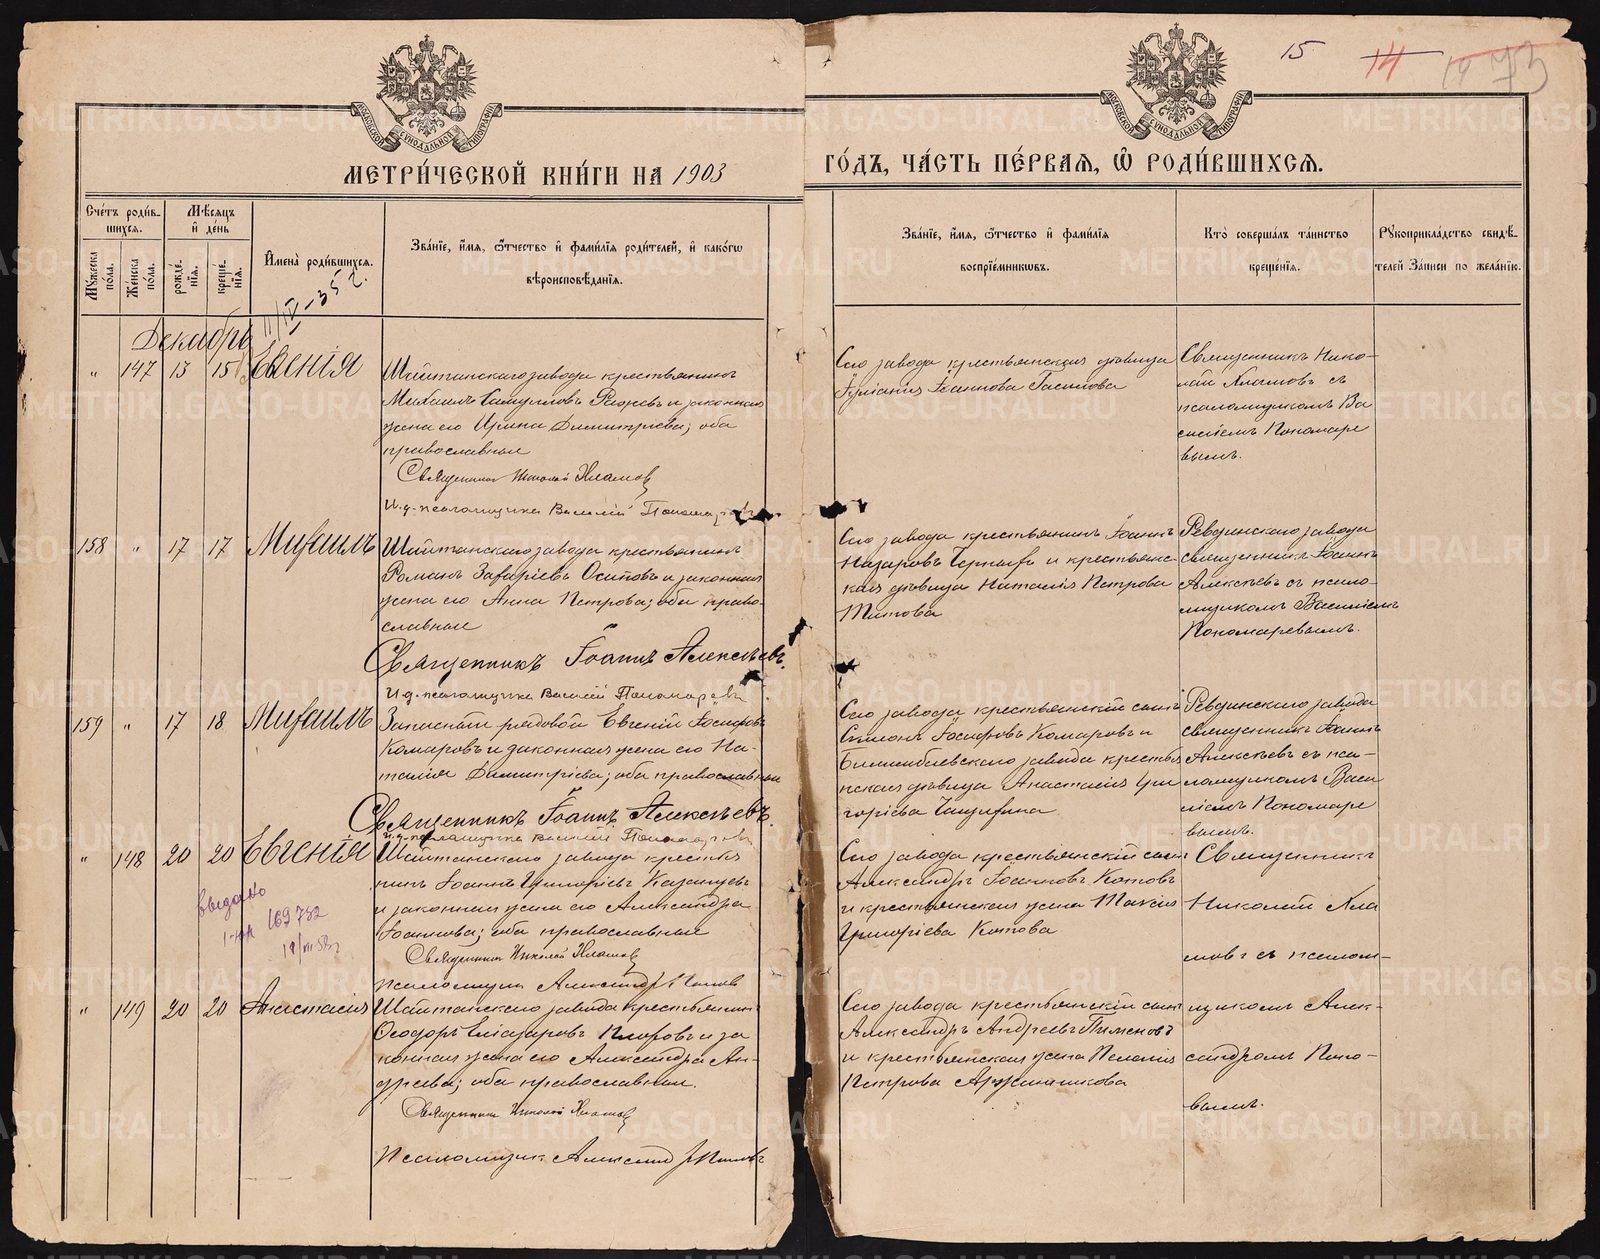 15 14
МЕТРИ́ЧЕСКОЙ КНИ́ГИ НА 1903
ГО́ДЪ, ЧА́СТЬ ПЕ́РВАЯ, Ѽ РОДИ́ВШИХСЯ.
Сче́тъ роди́в-
шихся.
Мꙋ́жеска
по́ла.
Же́нска
по́ла.
Мѣ́сяцъ
и҆ де́нь
рожде́-
нїя.
креще́-
нїя.
И҆мена̀ роди́вшихся.
Зва́нїе, и҆́мя, ѻ҆́тчество и҆ фами́лїя роди́телей, и҆ како́гѡ
вѣроисповѣ́данїя.
Зва́нїе, и҆́мя, ѻ҆́тчество и҆ фами́лїя
воспрїе́мникѡвъ.
Кто̀ соверша́лъ та́инство
креще́нїя.
Рꙋкоприкла́дство свидѣ́-
телей за́писи по жела́нїю.
11/IV-35 г.
Декабрь
„ 147 13 15 Евгенія
Шайтанскаго завода крестьянинъ
Михаилъ Самуиловъ и законная
жена его Ирина Димитріева; оба
православные
Священникъ Николай Хламов
И.д. псаломщика Василій Пономаревъ
Сего завода крестьянская дѣвица
Іуліанія Іоаннова
Священникъ Нико-
лай Хламовъ съ
псаломщикомъ Ва
силіемъ Пономаре
вымъ.
158 „ 17 17 Михаилъ
Шайтанскаго завода крестьянинъ
Романъ Захаріевъ Осиповъ и законная
жена его Анна Петрова; оба право-
славные
Священникъ Іоаннъ Алексѣевъ.
И.д. псаломщика Василій Пономаревъ
Сего завода крестьянинъ Іоаннъ
Назаровъ и крестьянс-
кая дѣвица Наталія Петрова
Титова
Ревдинскаго завода
священникъ Іоаннъ
Алексѣевъ съ псало-
мщикомъ Василіемъ
Пономаревымъ.
159 „ 17 18 Михаилъ
Запасный рядовой Евгеній Іосифовъ
Комаровъ и законная жена его На-
талія Димитріева; оба православные
Священникъ Іоаннъ Алексѣевъ.
И.д. псаломщика Василій Пономаревъ
Сего завода крестьянскій сынъ
Симонъ Іосифовъ Комаровъ и
Билимбаевскаго завода крестья
нская дѣвица Анастасія Гри
горіева
Ревдинскаго завода
священникъ Іоаннъ
Алексѣевъ съ пса-
ломщикомъ Васи
ліемъ Пономаре
вымъ.
„ 148 20 20 Евгенія
выдано
169732
Шайтанскаго завода крестья
нинъ Іоаннъ Григоріевъ Казанцевъ
и законная жена его Александра
Іоаннова; оба православные
Священникъ Николай Хламов
Псаломщик Александръ Попов
Сего завода крестьянскій сынъ
Александръ Іоанновъ Котовъ
и крестьянская жена Таисія
Григоріева Котова
Священникъ
Николай Хла
мовъ съ псалом-
щикомъ Алек-
сандромъ Попо-
вымъ.
„ 149 20 20 Анастасія
Шайтанскаго завода крестьянинъ
Ѳеодоръ Еліазаровъ и за
конная жена его Александра Ан-
дреева; оба православные.
Священникъ Николай Хламов
Псаломщик Александръ Попов
Сего завода крестьянскій сынъ
Александръ Андреевъ Пименовъ
и крестьянская жена Пелагія
Петрова
METRIKI.GASO-URAL.RU